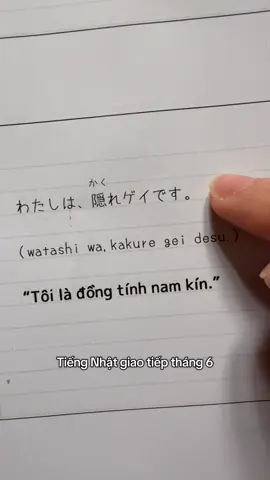 かく
わたしは、隠れゲイです。
(watashi wa,kakure gei desu.)
“Tôi là đồng tính nam kín.”
Tiếng Nhật giao tiếp tháng 6